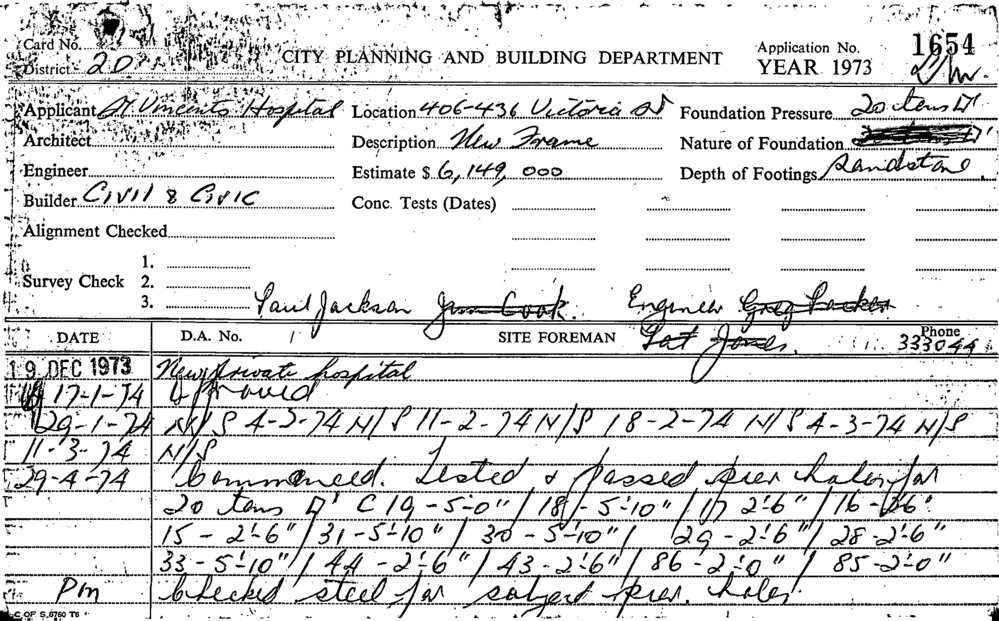 Card No. CITY PLANNING AND BUILDING DEPARTMENT Application No. 1654
District 20 YEAR 1973
Applicant St Vincents Hospital Location 406-436 Victoria St Foundation Pressure 20 tons □'
Architect Description New Frame Nature of Foundation
Engineer Estimate $ 6,149,000 Depth of Footings Sandstone
Builder Civil & Civic Conc. Tests (Dates)
Alignment Checked
1.
Survey Check 2.
3. Paul Jackson Jim Cook. Engineer Greg Packer
DATE D.A. No. / SITE FOREMAN Pat Jones. Phone 333044
19 DEC 1973 New private hospital
17-1-74 Approved
29-1-74 N/S 4-2-74 N/S 11-2-74 N/S 18-2-74 N/S 4-3-74 N/S
11-3-74 N/S
29-4-74 Commenced. Tested & passed pier holes for
20 tons □' C 19-5'-0" / 18-5'-10" / 17 2'-6" / 16-
15-2'-6" / 31-5'-10" / 30-5'-10" / 29-2'-6" / 28-2'-6"
33-5'-10" / 44-2'-6" / 43-2'-6" / 86-2'-0" / 85-2'-0"
Pm Checked steel for subject pier holes.
C OF S.6760 T6